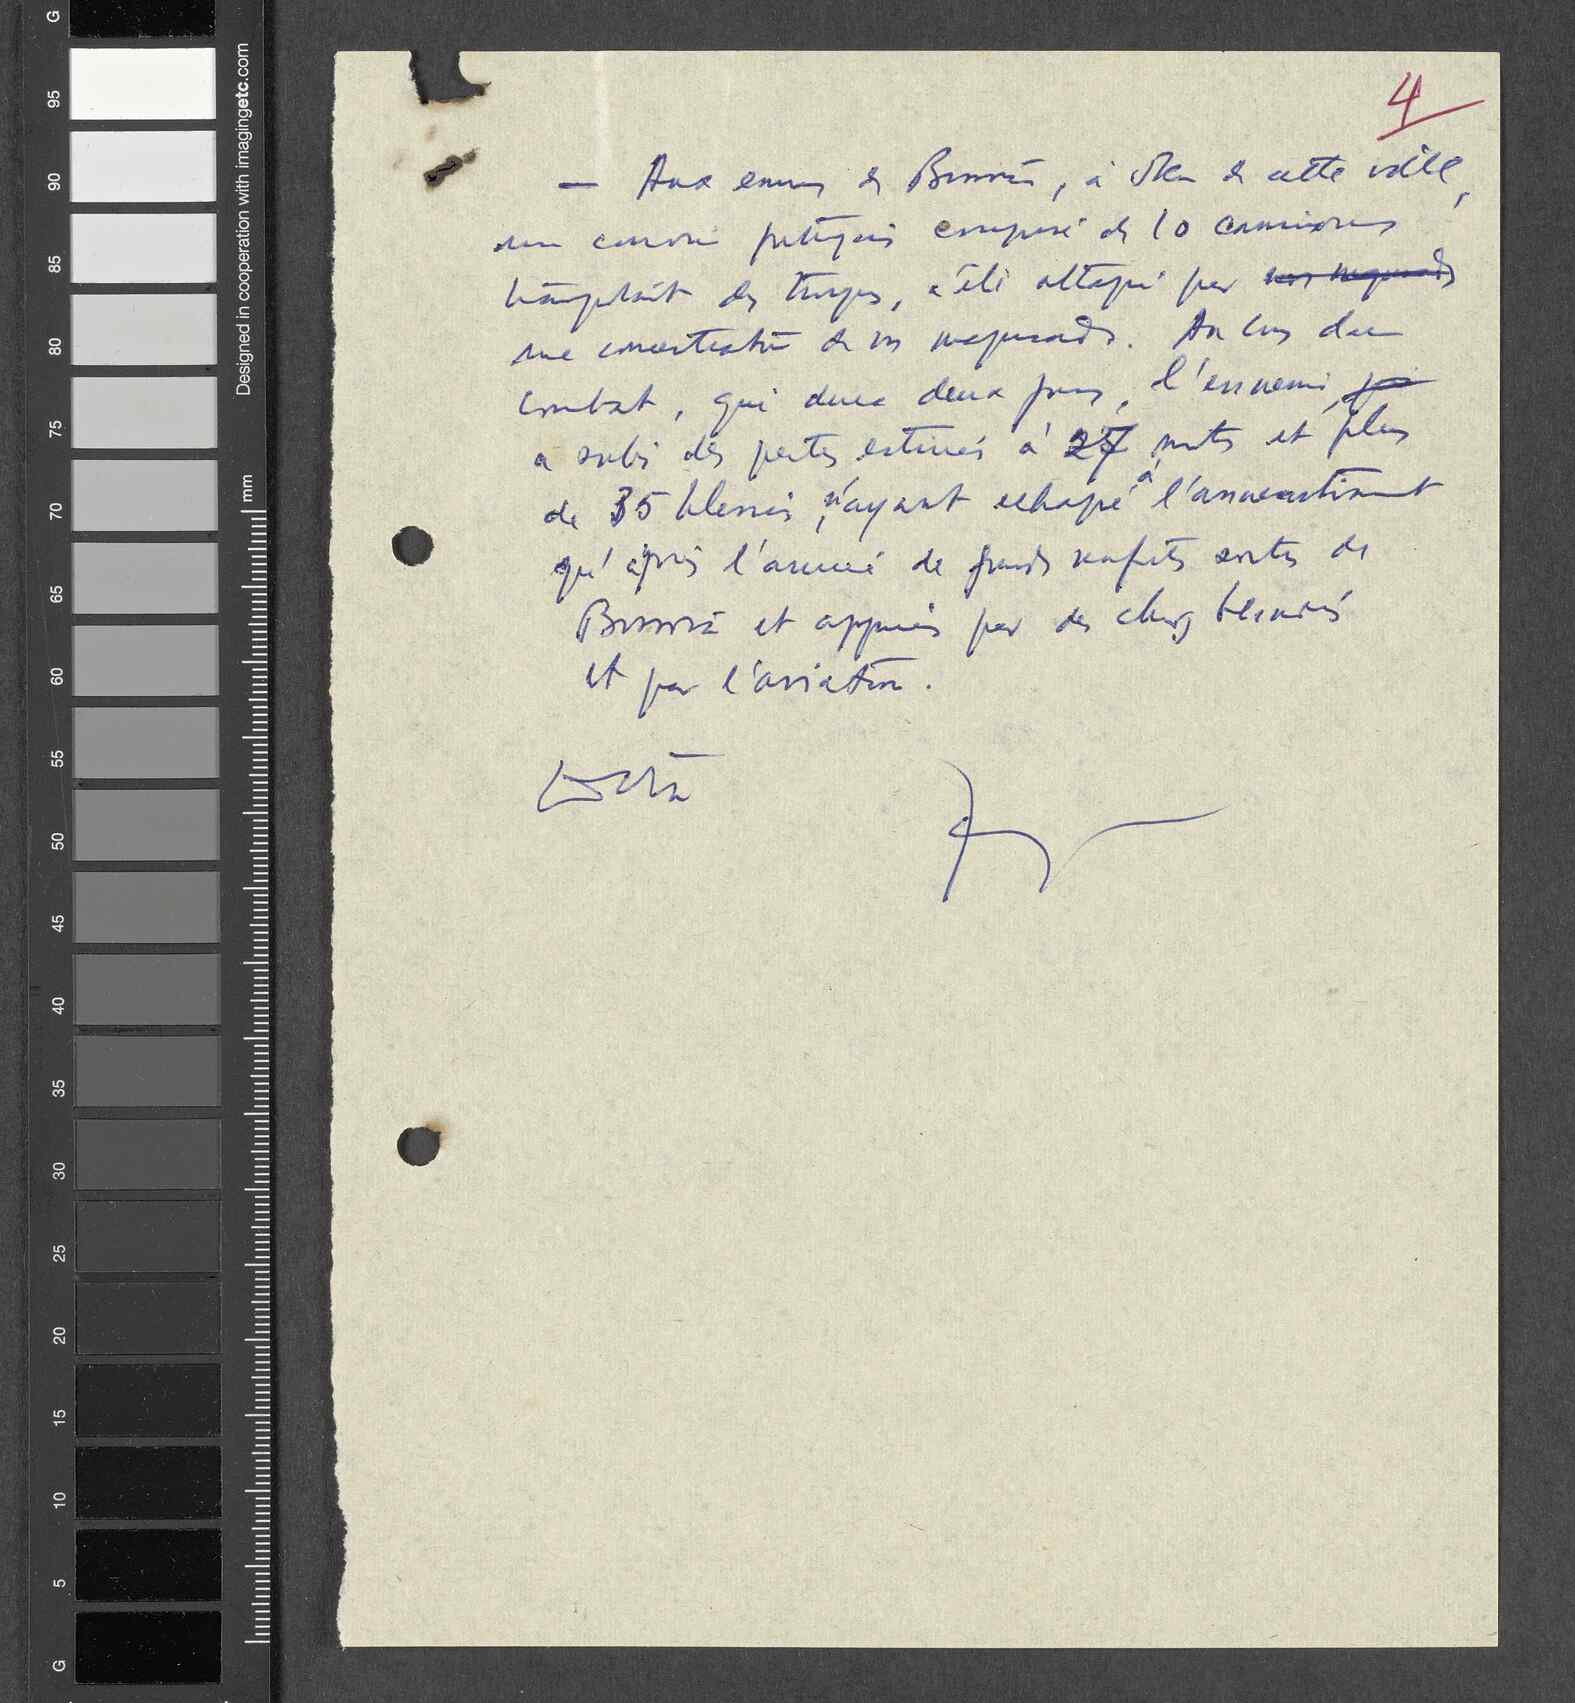 4
— Aux environs de Bissorã, à 5 km de cette ville,
un convoi portugais composé de 10 camions
transportant des troupes, a été attaqué par
une concentration de nos maquisards. Au cours d'un
combat, qui dura deux jours, l'ennemi
a subi des pertes estimées à 27 morts et plus
de 35 blessés, n'ayant echapé à l'anneantissement
qu'après l'arrivée de grands renforts sortis de
Bissorã et appuiés par des chars blindés
et par l'aviation.
G
95
90
85
80
75
70
65
60
55
50
45
40
35
30
25
20
15
10
5
G
mm
Designed in cooperation with imagingetc.com